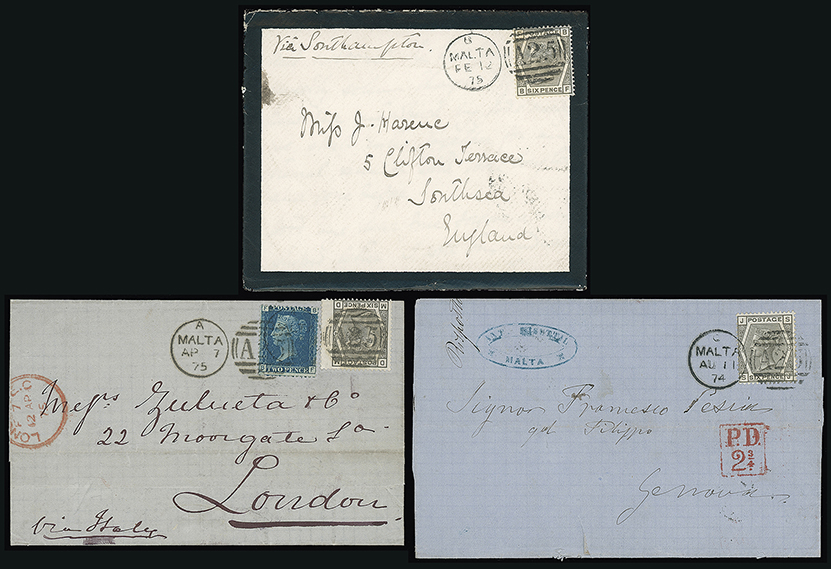 Via Southampton.
B
MALTA
FE 12
75
A25
POSTAGE
B
SIX PENCE
B F
Miss J. Harene
5 Clifton Terrace
Southsea
England
A
MALTA
AP 7
75
A
25
POSTAGE
TWO PENCE
SIX PENCE
M D
D M
LON
12 AP
Messrs Zulueta & Co
22 Moorgate St
London
via Italy
MALTA
C
MALTA
AU 11
74
A2
J POSTAGE S
S SIX PENCE J
Signor Francesco
qd Filippo
P.D.
2¾
Genova